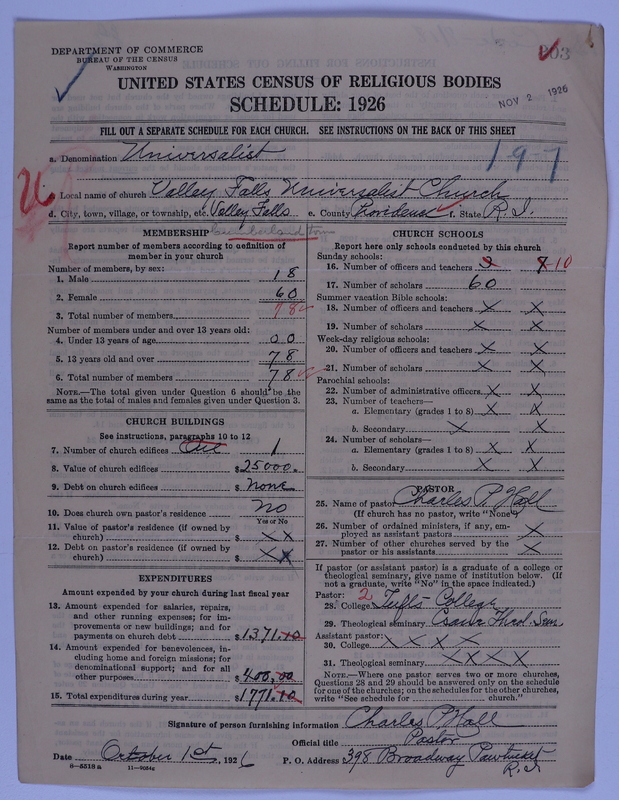 DEPARTMENT OF COMMERCE
BUREAU OF THE CENSUS
WASHINGTON
UNITED STATES CENSUS OF RELIGIOUS BODIES
SCHEDULE: 1926
NOV 2 1926
FILL OUT A SEPARATE SCHEDULE FOR EACH CHURCH. SEE INSTRUCTIONS ON THE BACK OF THIS SHEET
a. Denomination Universalist
1-9-7
Local name of church Valley Falls Universalist Church
d. City, town, village, or township, etc. Valley Falls e. County Providence f. State R.I.
Cumberland town
MEMBERSHIP
Report number of members according to definition of
member in your church
Number of members, by sex:
1. Male 18
2. Female 60
3. Total number of members 78
Number of members under and over 13 years old:
4. Under 13 years of age 00
5. 13 years old and over 78
6. Total number of members 78
NOTE.—The total given under Question 6 should be the
same as the total of males and females given under Question 3.
CHURCH BUILDINGS
See instructions, paragraphs 10 to 12
7. Number of church edifices One 1
8. Value of church edifices $25000.
9. Debt on church edifices $ None
10. Does church own pastor's residence No
Yes or No
11. Value of pastor's residence (if owned by
church) $ X X
12. Debt on pastor's residence (if owned by
church) $ X X
EXPENDITURES
Amount expended by your church during last fiscal year
13. Amount expended for salaries, repairs,
and other running expenses; for im-
provements or new buildings; and for
payments on church debt $1371.10
14. Amount expended for benevolences, in-
cluding home and foreign missions; for
denominational support; and for all
other purposes $400.00
15. Total expenditures during year $1771.10
CHURCH SCHOOLS
Report here only schools conducted by this church
Sunday schools:
16. Number of officers and teachers 10
17. Number of scholars 60
Summer vacation Bible schools:
18. Number of officers and teachers X X
19. Number of scholars X X
Week-day religious schools:
20. Number of officers and teachers X X
21. Number of scholars X X
Parochial schools:
22. Number of administrative officers X X
23. Number of teachers—
a. Elementary (grades 1 to 8) X X
b. Secondary X X
24. Number of scholars—
a. Elementary (grades 1 to 8) X X
b. Secondary X X
PASTOR
25. Name of pastor Charles P. Hall
(If church has no pastor, write "None")
26. Number of ordained ministers, if any, em-
ployed as assistant pastors X
27. Number of other churches served by the
pastor or his assistants X
If pastor (or assistant pastor) is a graduate of a college or
theological seminary, give name of institution below. (If
not a graduate, write "No" in the space indicated.)
Pastor: 2
28. College Tufts College
29. Theological seminary Crane Theol. Sem
Assistant pastor:
30. College X X X X
31. Theological seminary X X X X
NOTE.—Where one pastor serves two or more churches,
Questions 28 and 29 should be answered only on the schedule
for one of the churches; on the schedules for the other churches,
write "See schedule for church."
Signature of person furnishing information Charles P. Hall
Official title Pastor
Date October 1st, 1926 P. O. Address 398 Broadway Pawtucket
R.I.
8—5518 a 11—9084